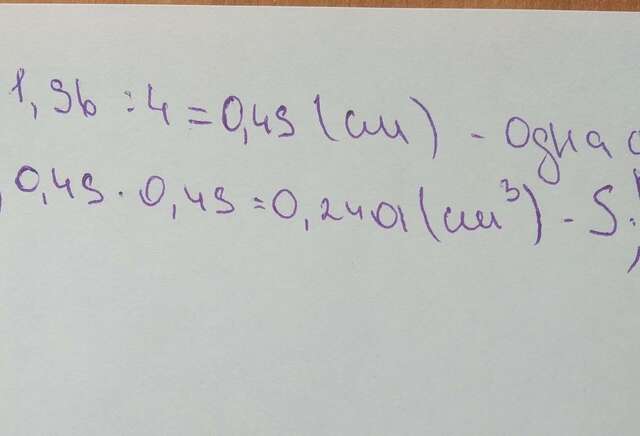 1,96 : 4 = 0,49 (см) - одна с
0,49 · 0,49 = 0,2401 (см³) - S